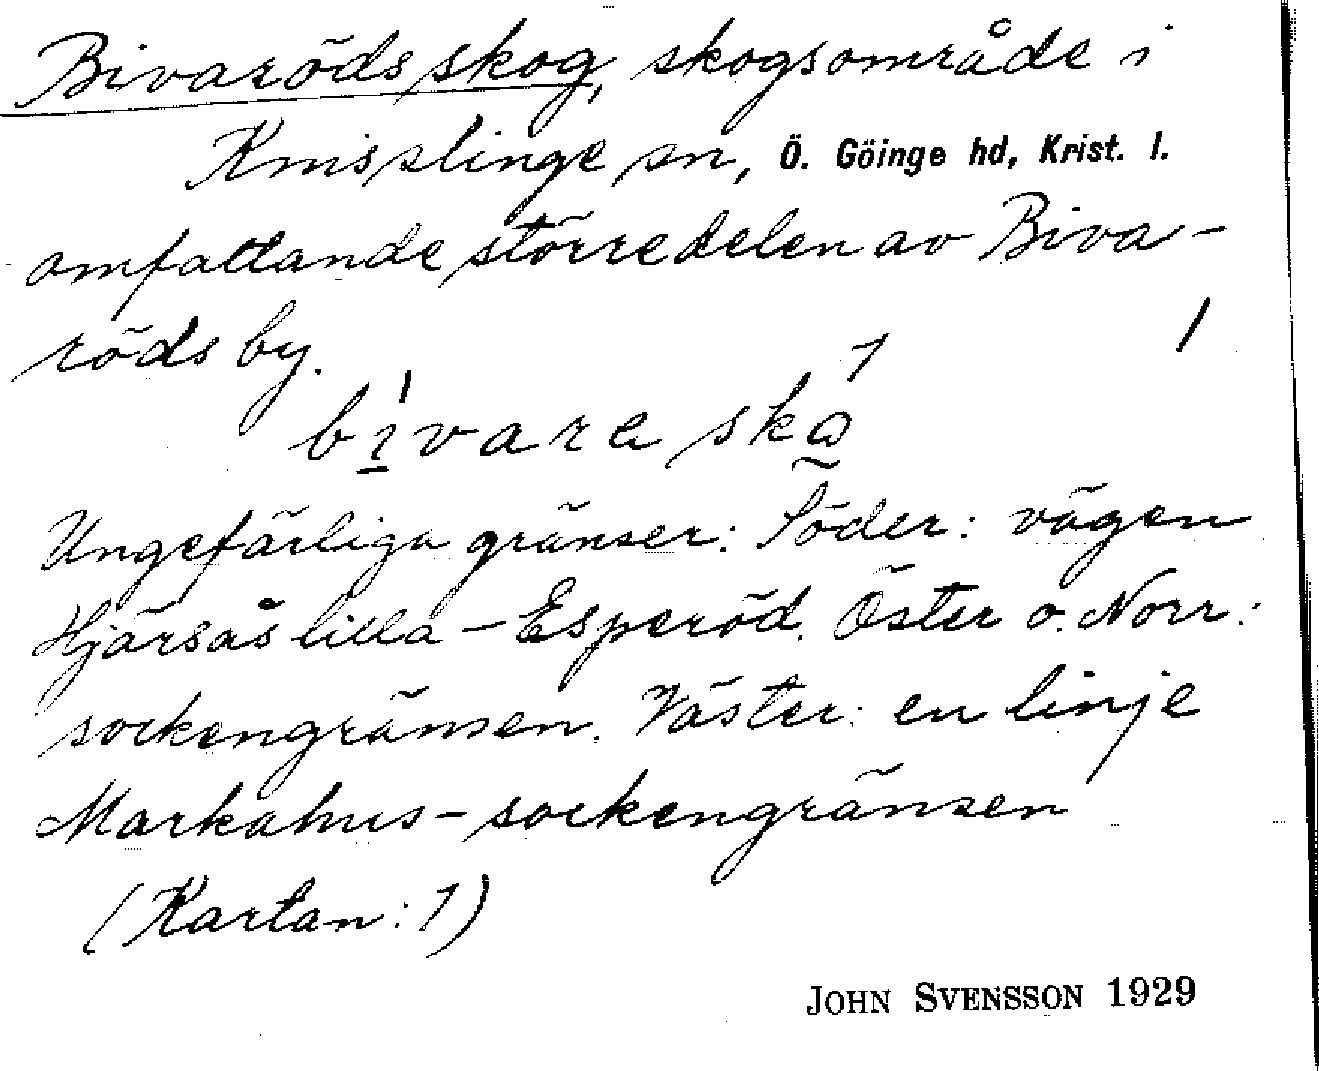 Bivaröds skog, skogsområde i
Knisslinge sn, Ö. Göinge hd, Krist. l.
omfattande större delen av Biva-
röds by.
bıvara skɑ
Ungefärliga gränser: Söder: vägen
Hjärsås lilla – Esperöd. Öster o. Norr:
sockengränsen. Väster: en linje
Markahus – sockengränsen
(Kartan: 1)
JOHN SVENSSON 1929